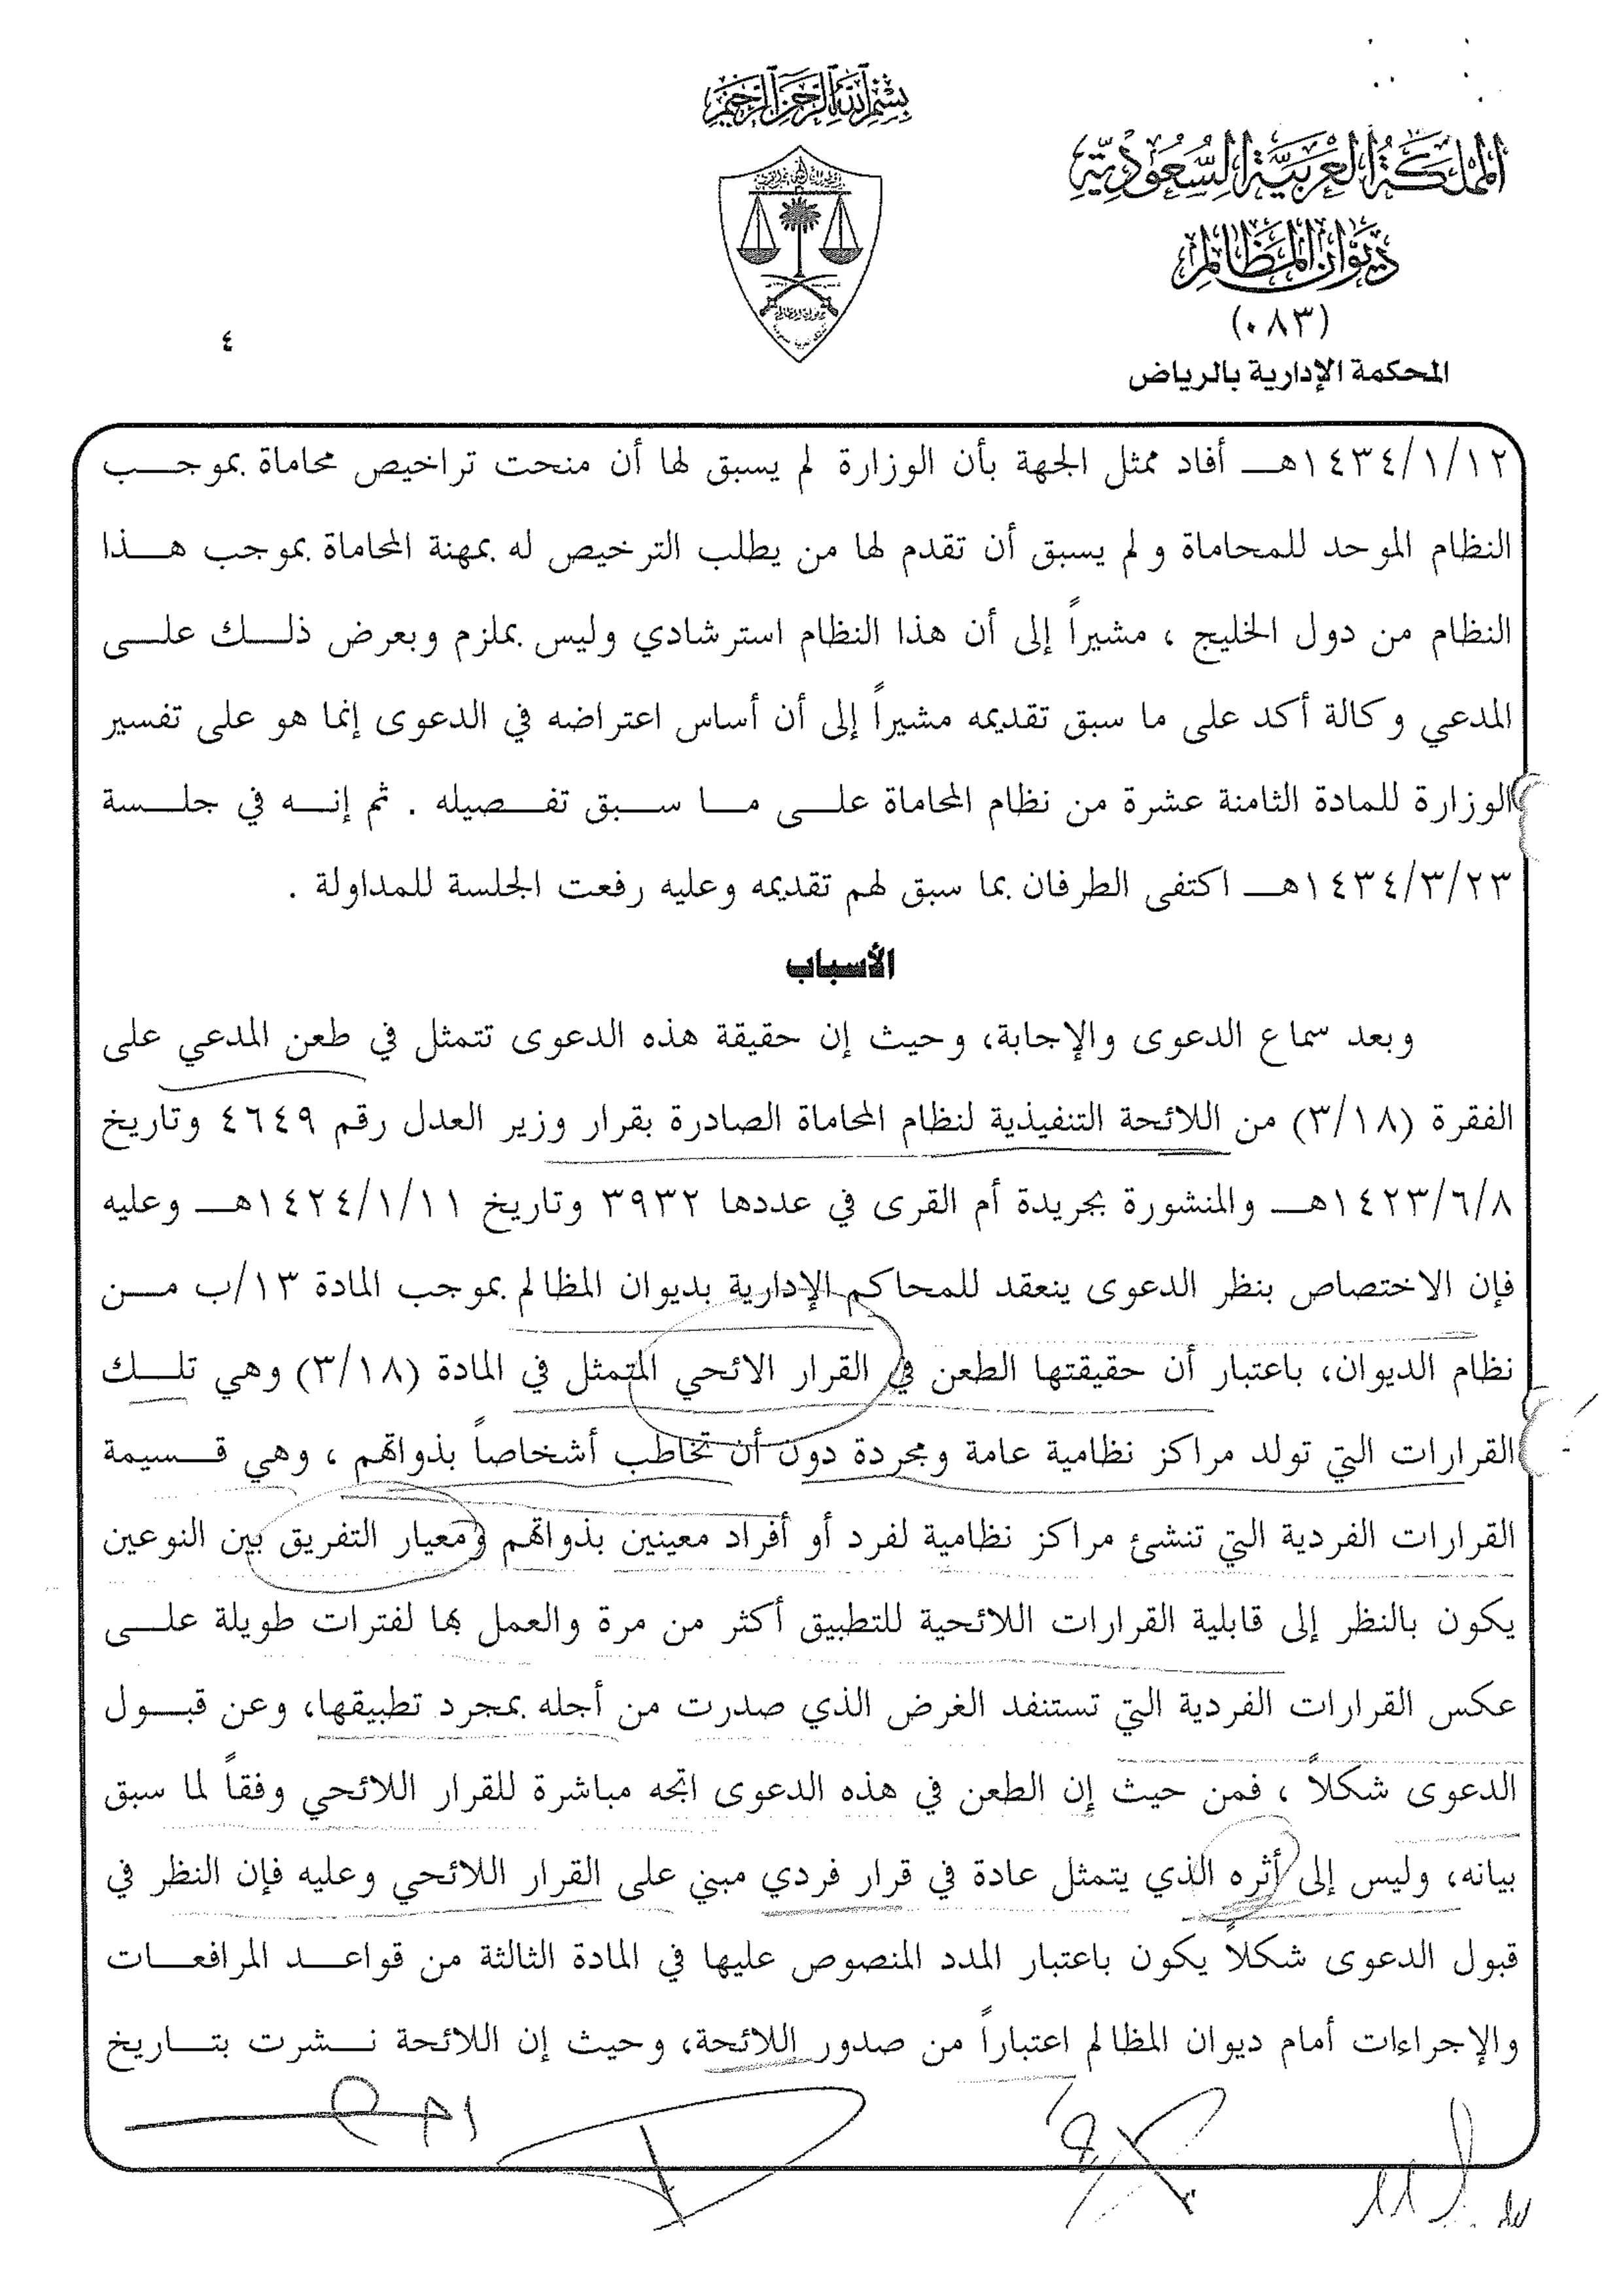 بسم الله الرحمن الرحيم
المملكة العربية السعودية
ديوان المظالم
(٠٨٣)
المحكمة الإدارية بالرياض
٤
١٤٣٤/١/١٢هـ أفاد ممثل الجهة بأن الوزارة لم يسبق لها أن منحت تراخيص محاماة بموجب
النظام الموحد للمحاماة ولم يسبق أن تقدم لها من يطلب الترخيص له بمهنة المحاماة بموجب هذا
النظام من دول الخليج ، مشيراً إلى أن هذا النظام استرشادي وليس بملزم وبعرض ذلك على
المدعي وكالة أكد على ما سبق تقديمه مشيراً إلى أن أساس اعتراضه في الدعوى إنما هو على تفسير
الوزارة للمادة الثامنة عشرة من نظام المحاماة على ما سبق تفصيله . ثم إنه في جلسة
١٤٣٤/٣/٢٣هـ اكتفى الطرفان بما سبق لهم تقديمه وعليه رفعت الجلسة للمداولة .
الأسباب
وبعد سماع الدعوى والإجابة، وحيث إن حقيقة هذه الدعوى تتمثل في طعن المدعي على
الفقرة (٣/١٨) من اللائحة التنفيذية لنظام المحاماة الصادرة بقرار وزير العدل رقم ٤٦٤٩ وتاريخ
١٤٢٣/٦/٨هـ والمنشورة بجريدة أم القرى في عددها ٣٩٣٢ وتاريخ ١٤٢٤/١/١١هـ وعليه
فإن الاختصاص بنظر الدعوى ينعقد للمحاكم الإدارية بديوان المظالم بموجب المادة ١٣/ب من
نظام الديوان، باعتبار أن حقيقتها الطعن في القرار الائحي المتمثل في المادة (٣/١٨) وهي تلك
القرارات التي تولد مراكز نظامية عامة ومجردة دون أن تخاطب أشخاصاً بذواتهم ، وهي قسيمة
القرارات الفردية التي تنشئ مراكز نظامية لفرد أو أفراد معينين بذواتهم ومعيار التفريق بين النوعين
يكون بالنظر إلى قابلية القرارات اللائحية للتطبيق أكثر من مرة والعمل بها لفترات طويلة على
عكس القرارات الفردية التي تستنفد الغرض الذي صدرت من أجله بمجرد تطبيقها، وعن قبول
الدعوى شكلاً ، فمن حيث إن الطعن في هذه الدعوى اتجه مباشرة للقرار اللائحي وفقاً لما سبق
بيانه، وليس إلى أثره الذي يتمثل عادة في قرار فردي مبني على القرار اللائحي وعليه فإن النظر في
قبول الدعوى شكلاً يكون باعتبار المدد المنصوص عليها في المادة الثالثة من قواعد المرافعات
والإجراءات أمام ديوان المظالم اعتباراً من صدور اللائحة، وحيث إن اللائحة نشرت بتاريخ